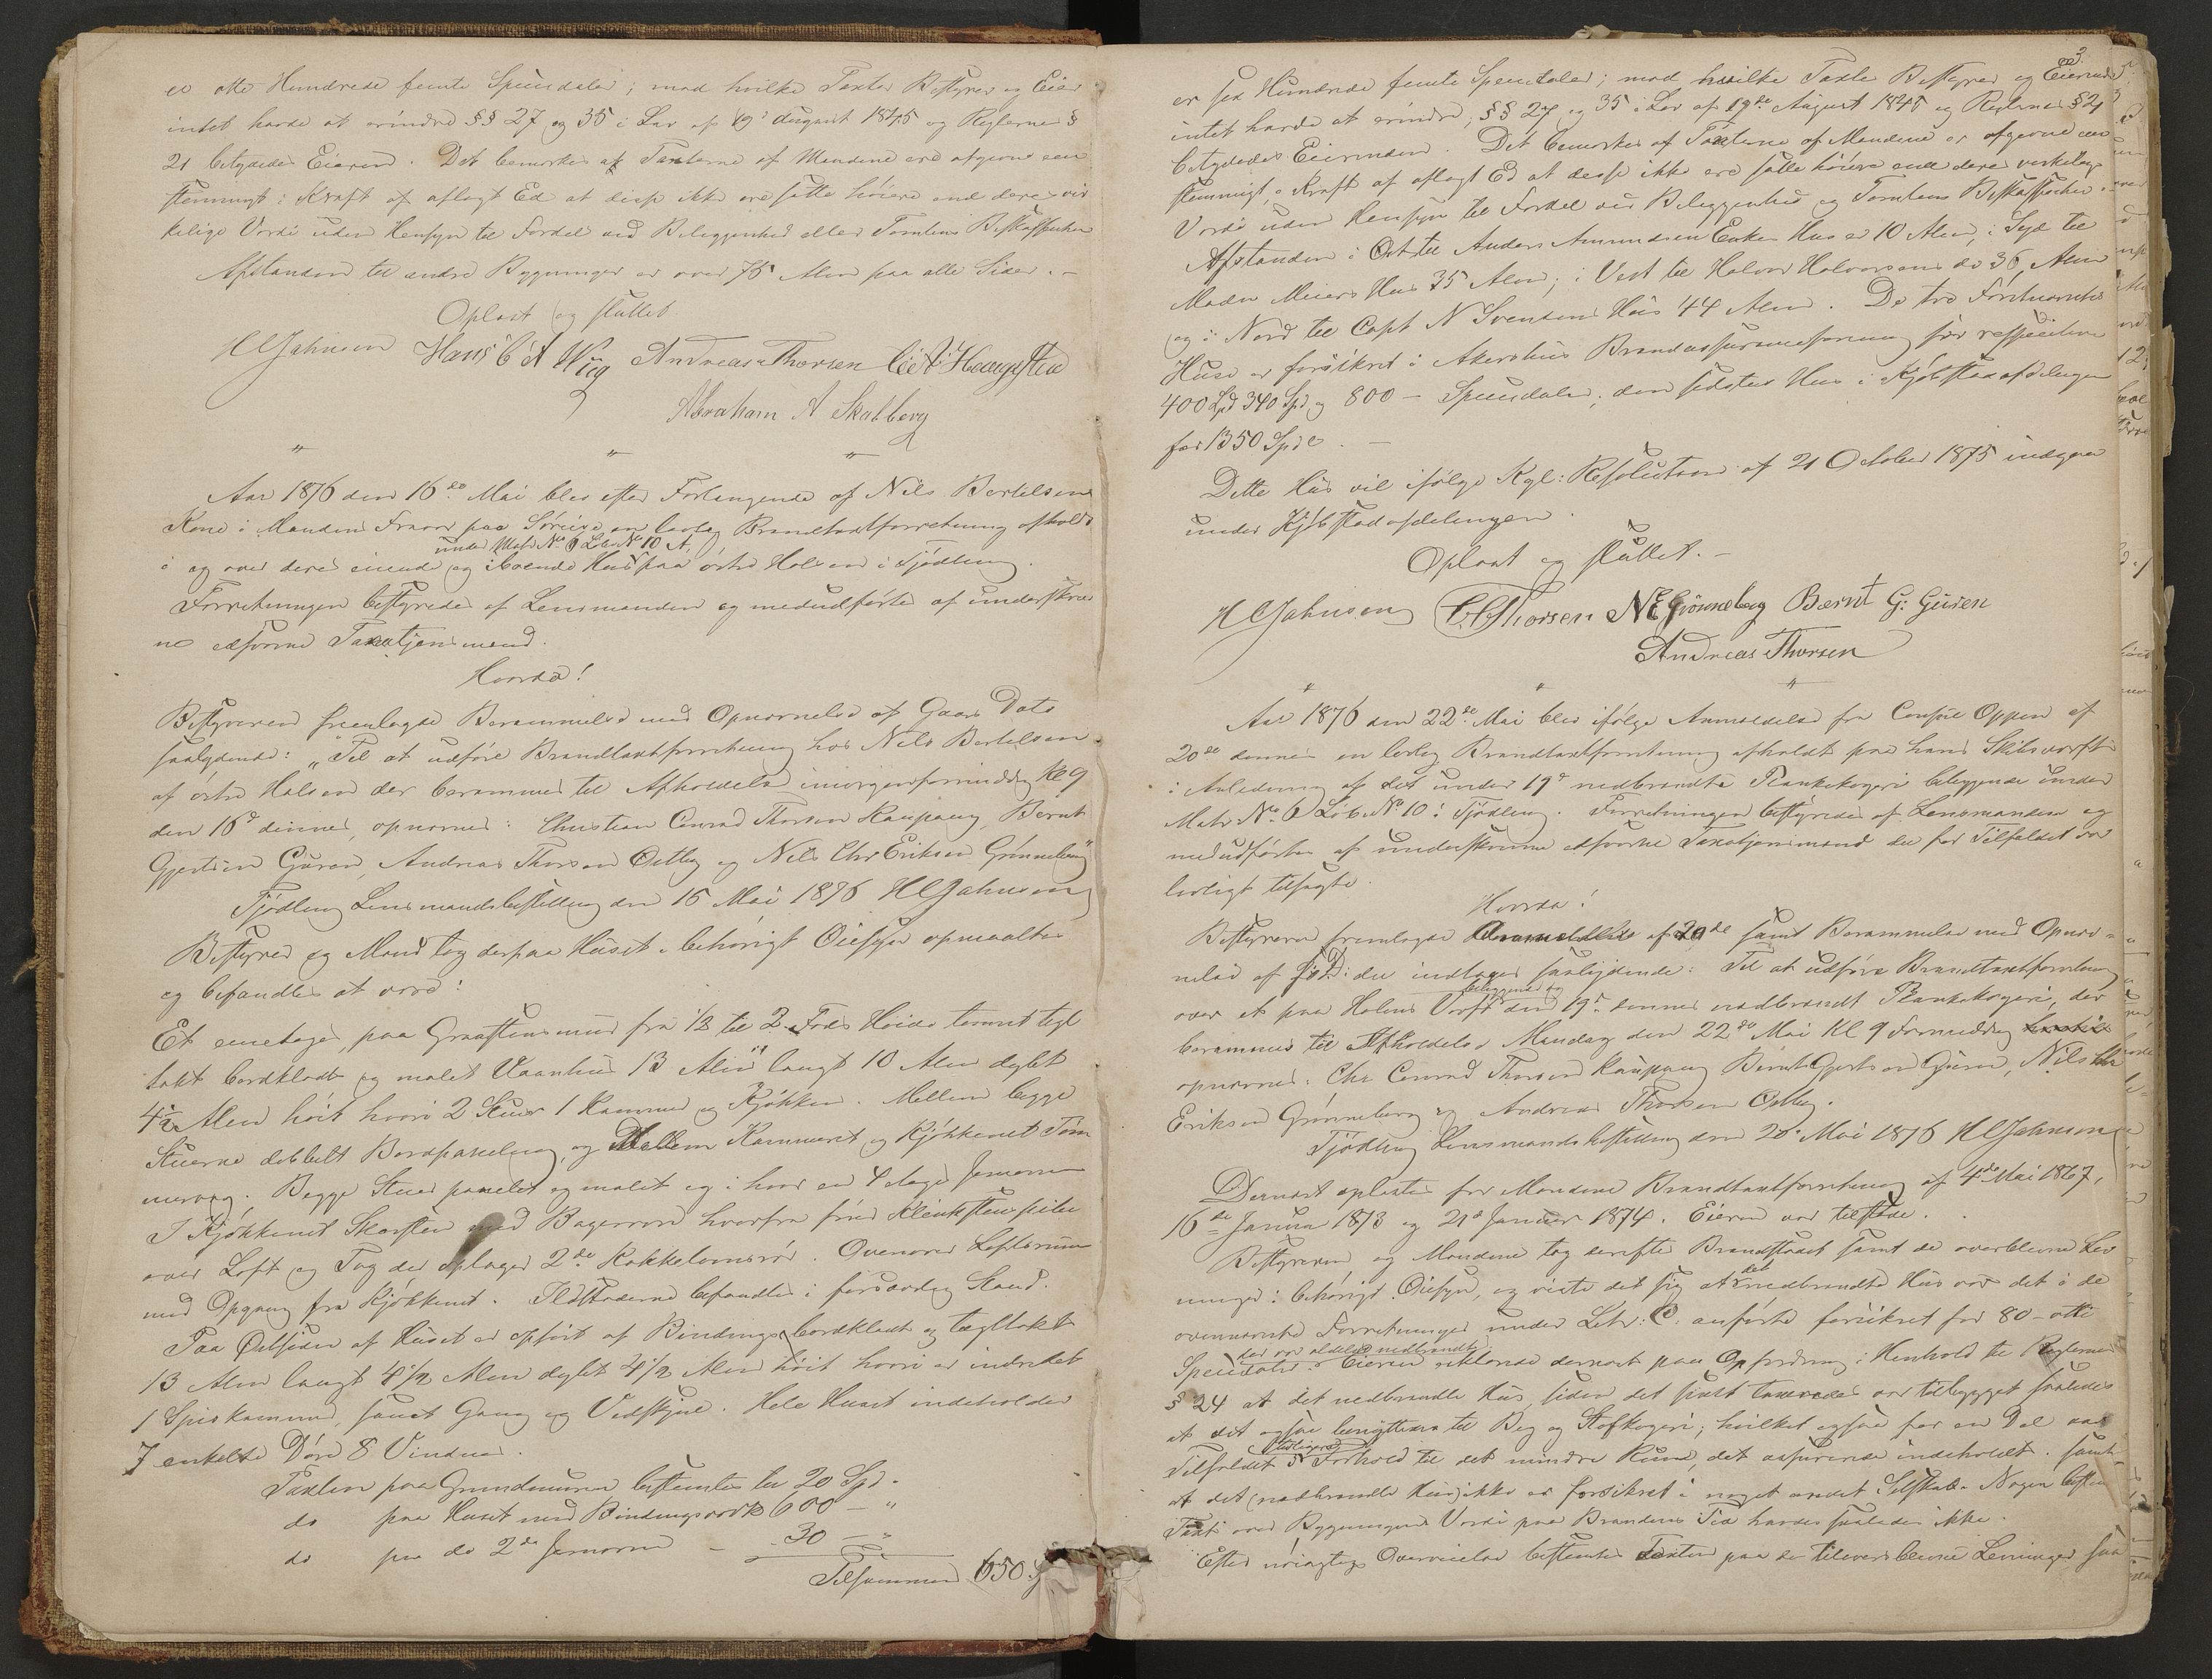 er otte Hundrede femti Speciedaler; mod hvilke Taxter Bestyrer og Eier
intet havde at erindre §§ 27 og 35 i Lov af 19de August 1845 og Reglerne §
21 betydedes Eieren. Det bemærkes at Taxterne af Mændene ere afgivne een
stemmigt i Kraft af aflagt Ed at disse ikke ere satte høiere end deres vir
kelige Værdi uden Hensyn til Fordel ved Beliggenhed eller Tomtens Beskaffenhed
Afstanden til andre Bygninger er over 75 Alen paa alle Sider. -
Oplæst og sluttet
H C Johnsen Hans C A Wiig Andreas Thorsen C A Haugsted
Abraham A Skalberg
" " "
Aar 1876 den 16de Mai blev efter Forlangende af Nils Bertelsens
Kone i Mandens Fravær paa Søreise en lovlig Brandtaxtforretning afholdt
under Matr No 6 Løbe No 10 A.
i og over deres eiende og iboende Huus paa østre Halsen i Tjødling.
Forretningen bestyredes af Lensmanden og medudførtes af underskrev
ne edsvorne Taxationsmænd.
Hvorda!
Bestyreren fremlagde Berammelse med Opnævnelse af Gaars Dato
saalydende: "Til at udføre Brandtaxtforretning hos Nils Bertelsen
af østre Halsen der berammes til Afholdelse imorgenformiddag Kl 9
den 16de dennes, opnævnes: Christian Conrad Thorsen Kaupang, Bernt
Gjertsen Guren, Andreas Thorsen Østby og Nils Chr Eriksen Grønneberg"
Tjødling Lensmandsbestilling den 15 Mai 1876 H C Johnsen
Bestyrer og Mænd tog derpaa Huset i behørigt Øiesyn opmaaltes
og befandtes at være:
Et eenetages, paa Graastensmuur fra 1/2 til 2 Fods Høide tømret tegl
takt bordklædt og malet Vaanhus 13 Alen langt 10 Alen dybt
4 1/2 Alen høit hvori 2 Stuer 1 Kammer og Kjøkken. Mellem begge
Stuerne dobbelt Bordpaneling, og Mellem Kammeret og Kjøkkenet Tøm
mervæg. Begge Stuer panelet og malet og i hver en 4 etages Jernovn
I Kjøkkenet Skorsten med Bagerovn hvorfra fører Klinkstenspibe
over Loft og Tag der optager 2de Kakkelovnsrør. Ovenover Loftsrum
med Opgang fra Kjøkkenet. Ildstederne befandtes i forsvarlig Stand.
Paa Østsiden af Huset er opført af Bindings bordklædt og tegltakt
13 Alen langt 4 1/2 Alen dybt 4 1/2 Alen høit hvori er indredet
1 Spiskammer, samt Gang og Vedskjul. Hele Huset indeholder
7 enkelte Døre 8 Vinduer.
Taxten paa Grundmuren bestemtes til 20 Spd.
do paa Huset med Bindingsværk 600 — "
do paa do 2de Jernovne — 30 — "
Tilsammen 650 S
3
er sex Hundrede femti Speciedaler; mod hvilke Taxter Bestyrer og Eierinde
intet havde at erindre, §§ 27 og 35 i Lov af 19de August 1845 og Reglerne § 21
betydedes Eierinden. Det bemærkes at Taxterne af Mændene er afgivne een
stemmigt i Kraft af aflagt Ed at disse ikke ere satte høiere end deres virkelige
Værdi uden Hensyn til Fordel ved Beliggenhed og Tomtens Beskaffenhed.
Afstanden i Øst til Anders Amundsen Enkes Hus er 10 Alen, i Syd til
Madm Meiers Hus 35 Alen; i Vest til Halvor Halvorsens do 36 Alen
og i Nord til Capt N Svendsens Hus 44 Alen. De tre Førstnævnte
Huse er forsikret i Akershus Brandassuranceforening for respective
400 Spd 340 Spd og 800 — Speciedaler; den sidstes Hus i Kjøbstadafdelingen
for 1350 Spd. —
Dette Hus vil ifølge Kgl: Resolution af 21 October 1875 indgaa
under Kjøbstadafdelingen.
Oplæst og sluttet. -
H C Johnsen C C Thorsen N C Grønneberg Bernt G: Guren
Andreas Thorsen
" " "
Aar 1876 den 22de Mai blev ifølge Anmeldelse fra Consul Oppen af
20de dennes en lovlig Brandtaxtforretning afholdt paa hans Skibsværft
i Anledning af det under 19de nedbrændte Plankekogeri beliggende under
Matr No 6 Løbe No 10 i Tjødling. Forretningen bestyredes af Lensmanden og
medudførtes af underskrevne edsvorne Taxationsmænd der for Tilfældet var
lovligt tilsagte.
Hvorda!
Bestyreren fremlagde Anmeldelse af 20de samt Berammelse med Opnæv=
nelse af s: D: der indtages saalydende: Til at udføre Brandtaxtforretning
beliggende og
over et paa Holmens Værft den 19de dennes nedbrændt Plankekogeri, der
berammes til Afholdelse Mandag den 22de Mai Kl 9 Formiddag
opnævnes: Chr Conrad Thorsen Kaupang Bernt Gjertsen Guren, Nils Chr
Eriksen Grønneberg og Andreas Thorsen Østby.
Tjødling Lensmandsbestilling den 20de Mai 1876 H C Johnsen
Dernæst oplæstes for Mændene Brandtaxtforretning af 4de Mai 1867,
16de Januar 1873 og 21de Januar 1874. Eieren var tilstede.
Bestyreren og Mændene tog derefter Brandstedet samt de overblevne Lev
det
ninger i behørigt Øiesyn, og viste det sig at nedbrændte Hus var det i de
ovennævnte Forretninger under Litr: C. anførte forsikret for 80 - otti
der var aldeles nedbrændt.
Speciedaler. Eieren erklærede dernæst paa Opfordring i Henhold til Reglernes
§ 24 at det nedbrændte Hus, siden det sidst taxeredes var tilbygget saaledes
at det ogsaa benyttedes til Beg og Stofkogeri; hvilket ogsaa for en Del var
tidligere
Tilfældet i Forhold til det mindre Rum, det assurerede indeholdt. samt
at det (nedbrændte Hus) ikke er forsikret i noget andet Selskab. Nogen bestemt
Taxt over Bygningens Værdi paa Brandens Tid havdes saaledes ikke.
Efter nøiagtig Overveielse bestemtes Taxten paa de tiloversblevne Levninger saa